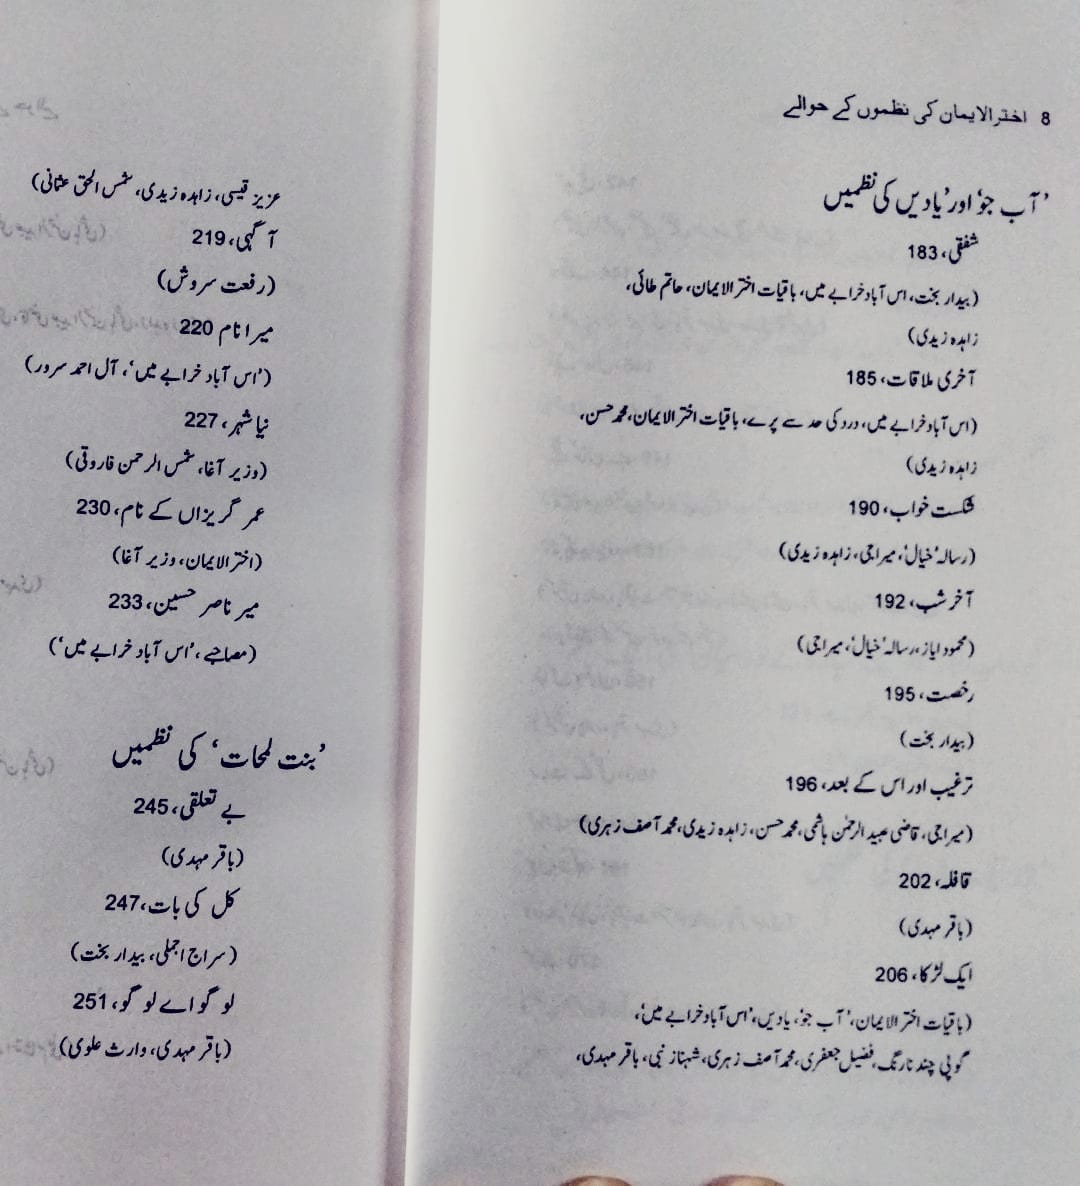 8 اخترالایمان کی نظموں کے حوالے
'آب جو' اور 'یادیں' کی نظمیں
شفقی، 183
(بیدار بخت، اس آباد خرابے میں، باقیات اختر الایمان، حاتم طائی،
زاہدہ زیدی)
آخری ملاقات، 185
(اس آباد خرابے میں، درد کی حد سے پرے، باقیات اختر الایمان، محمد حسن،
زاہدہ زیدی)
شکست خواب، 190
(رسالہ 'خیال'، میراجی، زاہدہ زیدی)
آخر شب، 192
(محمود ایاز، رسالہ 'خیال'، میراجی)
رخصت، 195
(بیدار بخت)
ترغیب اور اس کے بعد، 196
(میراجی، قاضی عبید الرحمٰن ہاشمی، محمد حسن، زاہدہ زیدی، محمد آصف زہری)
قافلہ، 202
(باقر مہدی)
ایک لڑکا، 206
(باقیات اختر الایمان، 'آب جو'، یادیں، 'اس آباد خرابے میں'،
گوپی چند نارنگ، فضیل جعفری، محمد آصف زہری، شہناز نبی، باقر مہدی،
عزیز قیسی، زاہدہ زیدی، شمس الحق عثمانی)
آگہی، 219
(رفعت سروش)
میرا نام 220
('اس آباد خرابے میں'، آل احمد سرور)
نیا شہر، 227
(وزیر آغا، شمس الرحمن فاروقی)
عمر گریزاں کے نام، 230
(اختر الایمان، وزیر آغا)
میر ناصر حسین، 233
(مصاحبے، 'اس آباد خرابے میں')
'بنت لمحات' کی نظمیں
بے تعلقی، 245
(باقر مہدی)
کل کی بات، 247
(سراج اجملی، بیدار بخت)
لوگو اے لوگو، 251
(باقر مہدی، وارث علوی)